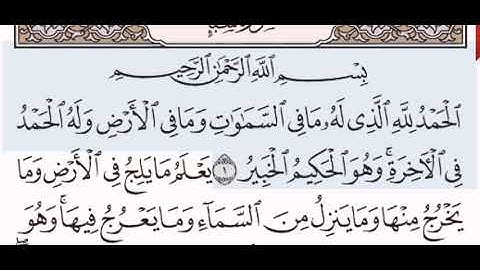 بِسْمِ ٱللَّهِ ٱلرَّحْمَٰنِ ٱلرَّحِيمِ
ٱلْحَمْدُ لِلَّهِ ٱلَّذِى لَهُۥ مَا فِى ٱلسَّمَٰوَٰتِ وَمَا فِى ٱلْأَرْضِ وَلَهُ ٱلْحَمْدُ
فِى ٱلْءَاخِرَةِ ۚ وَهُوَ ٱلْحَكِيمُ ٱلْخَبِيرُ ١ يَعْلَمُ مَا يَلِجُ فِى ٱلْأَرْضِ وَمَا
يَخْرُجُ مِنْهَا وَمَا يَنزِلُ مِنَ ٱلسَّمَآءِ وَمَا يَعْرُجُ فِيهَا ۚ وَهُوَ